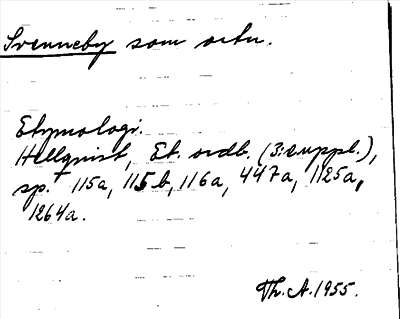 Svenneby som ortn.
Etymologi.
Hellquist, Et. ordb. (3:e uppl.),
sp. 115a, 115b, 116a, 447a, 1125a,
1264a.
Th. A. 1955.